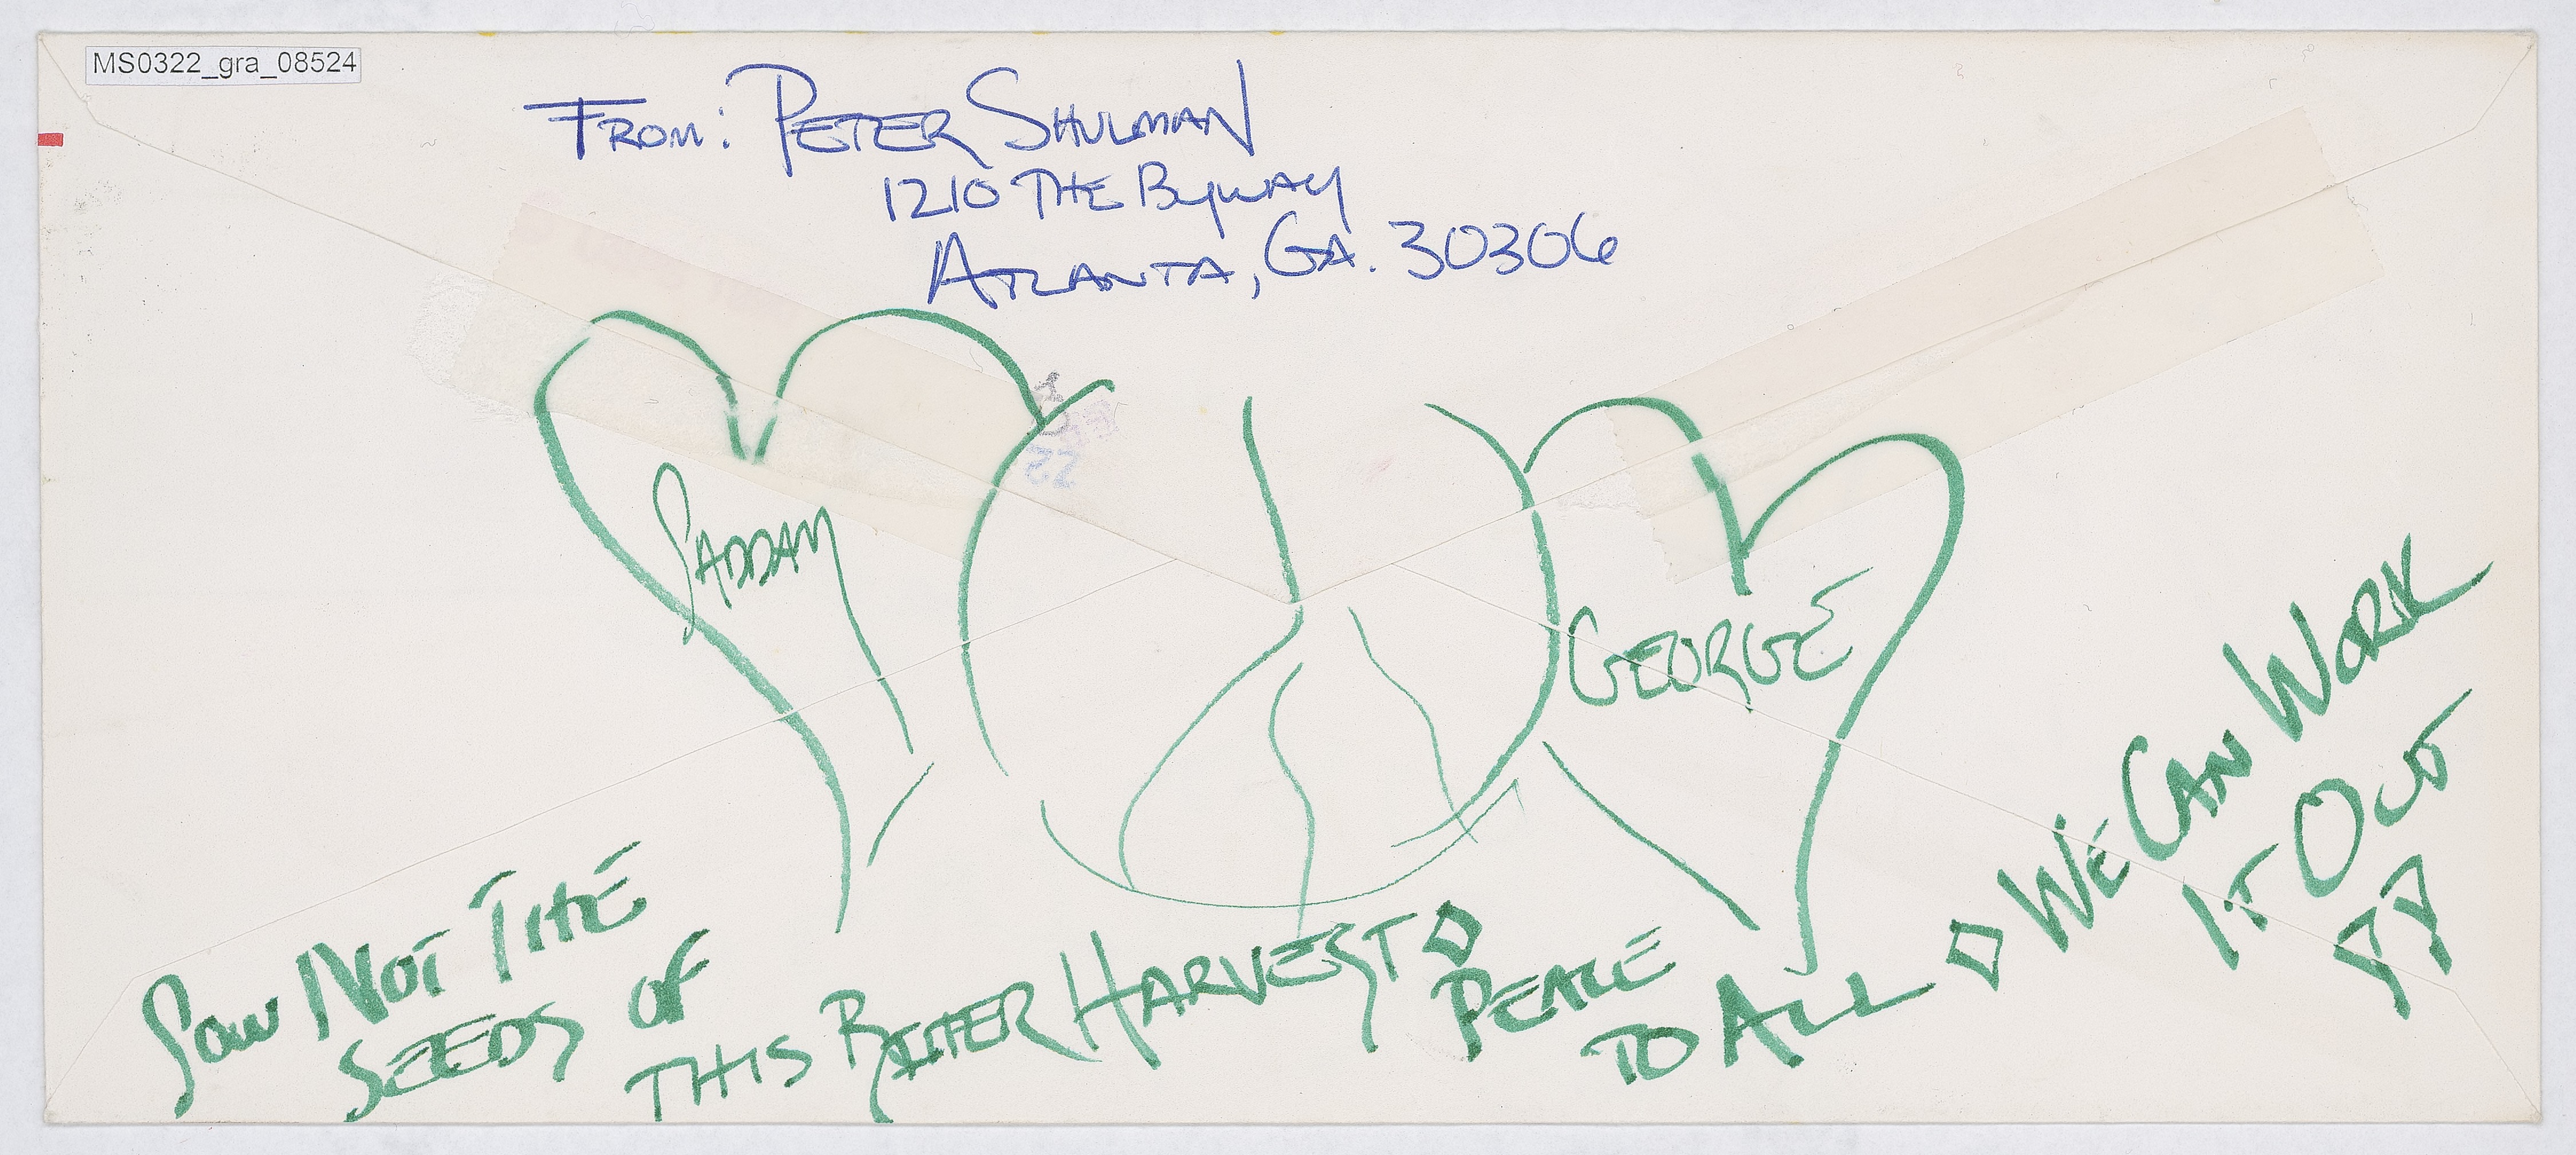 MS0322_gra_08524
FROM: PETER SHULMAN
1210 THE BYWAY
ATLANTA, GA. 30306
SADDAM
GEORGE
SOW NOT THE
SEEDS OF
THIS BITTER HARVEST
PEACE
TO ALL
WE CAN WORK
IT OUT
22